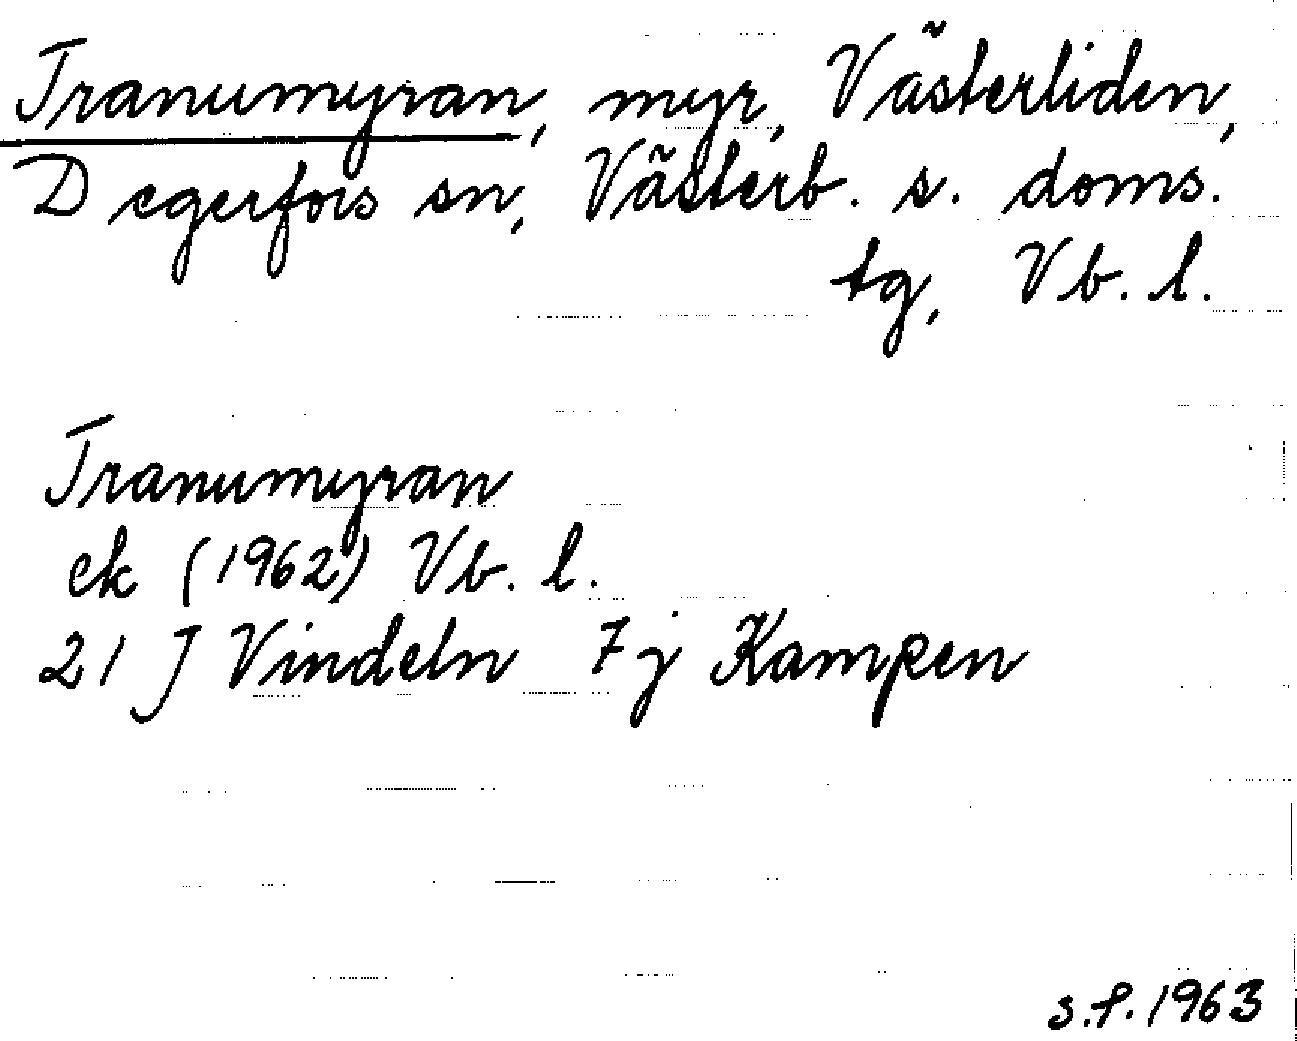 Tranumyran, myr, Västerliden,
Degerfors sn, Västerb. s. doms.
tg, Vb. l.
Tranumyran
ek (1962) Vb. l.
21 J Vindeln 7j Kampen
s.f. 1963